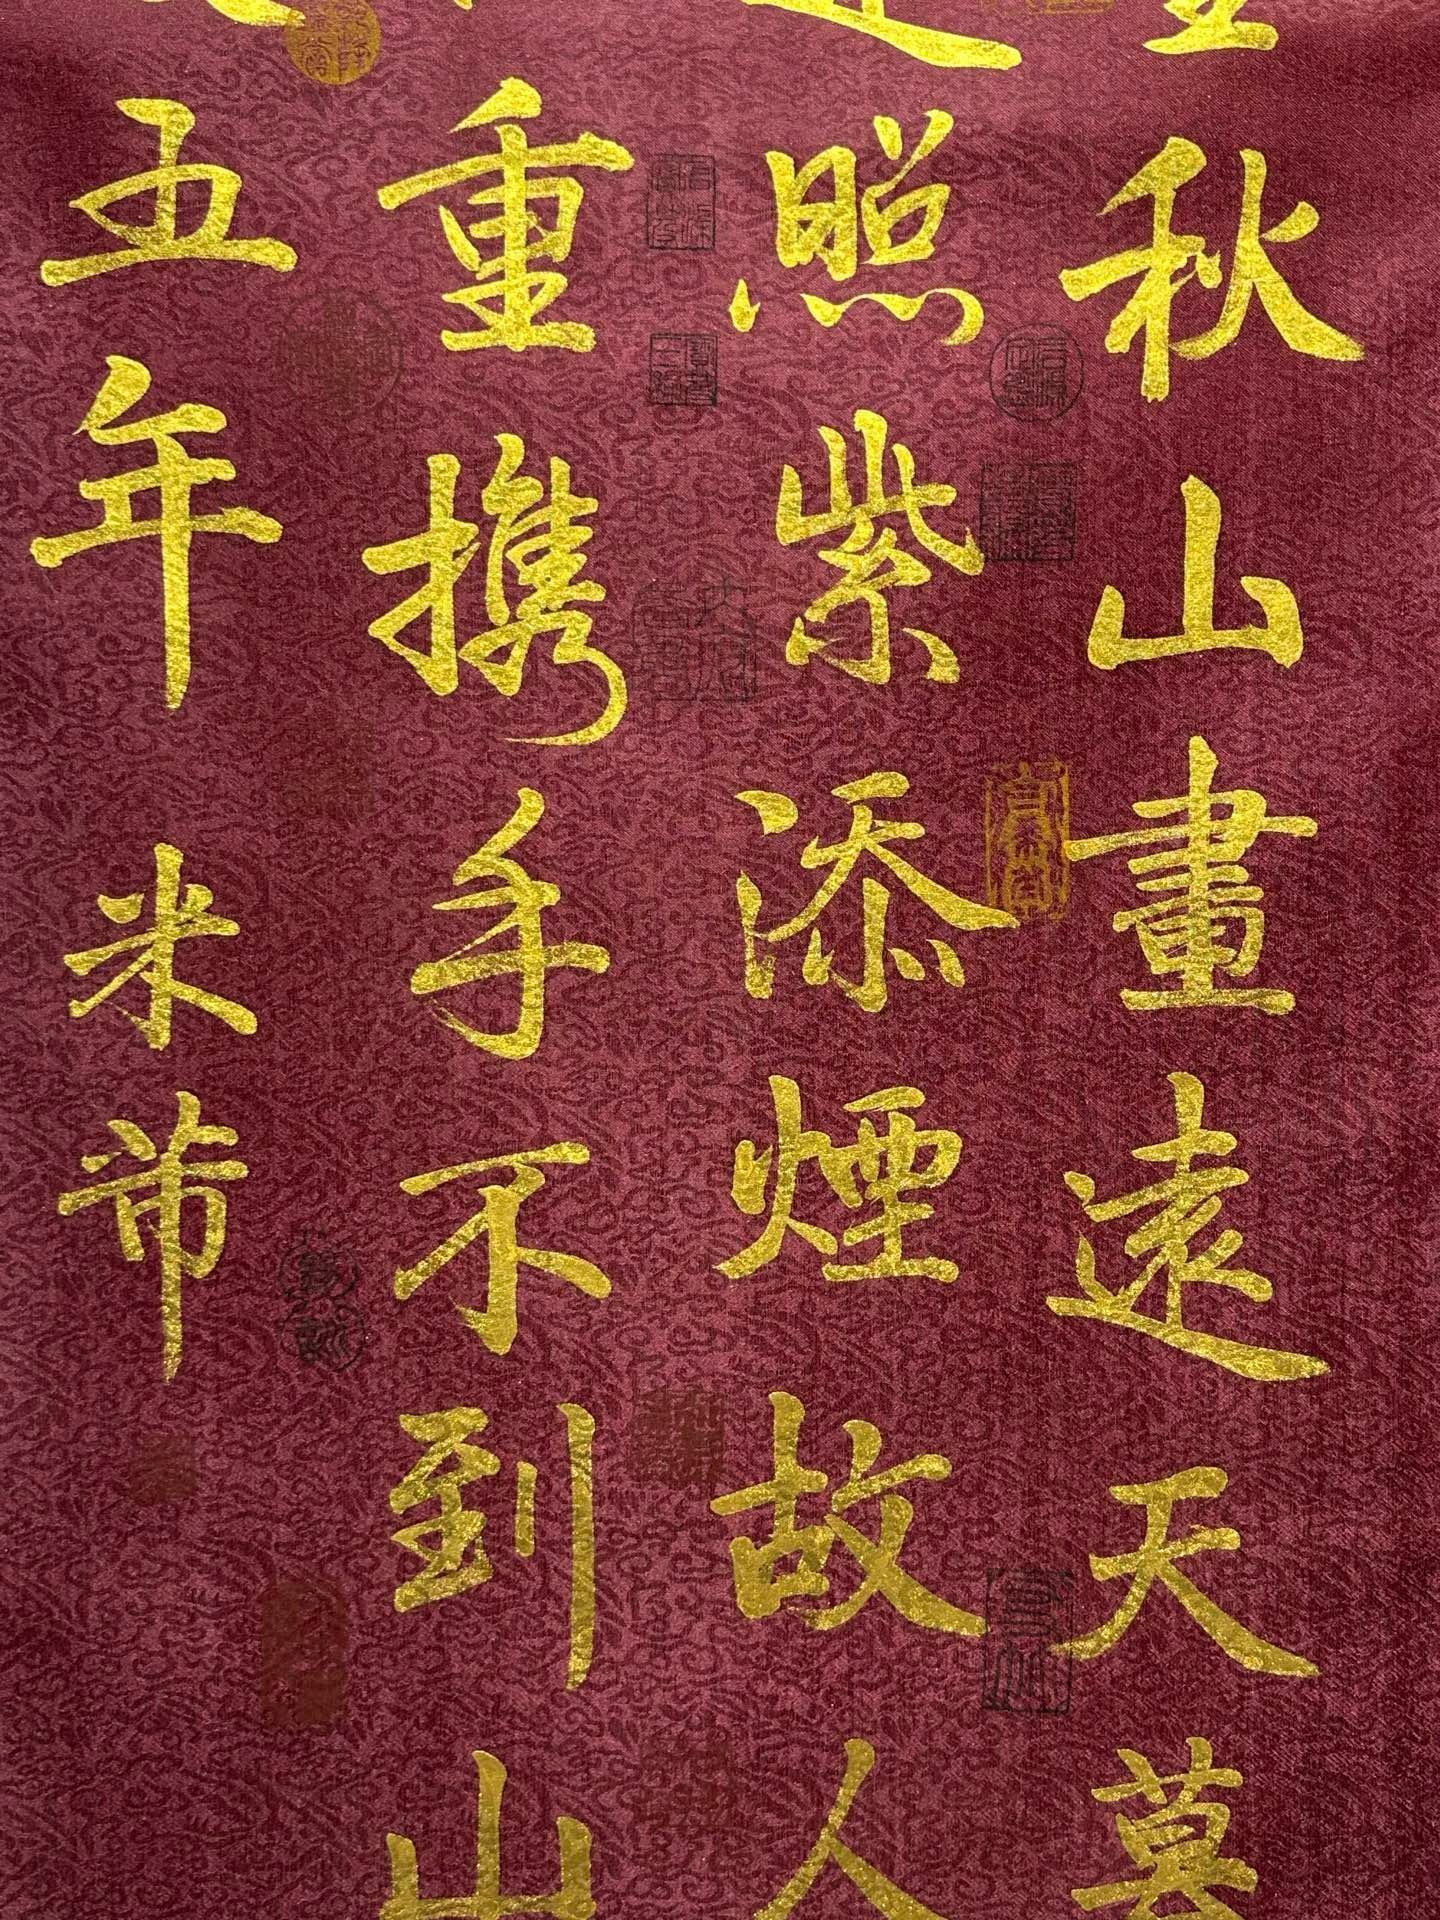 秋山畫遠天暮
照紫添煙故人
重携手不到山
五年米芾